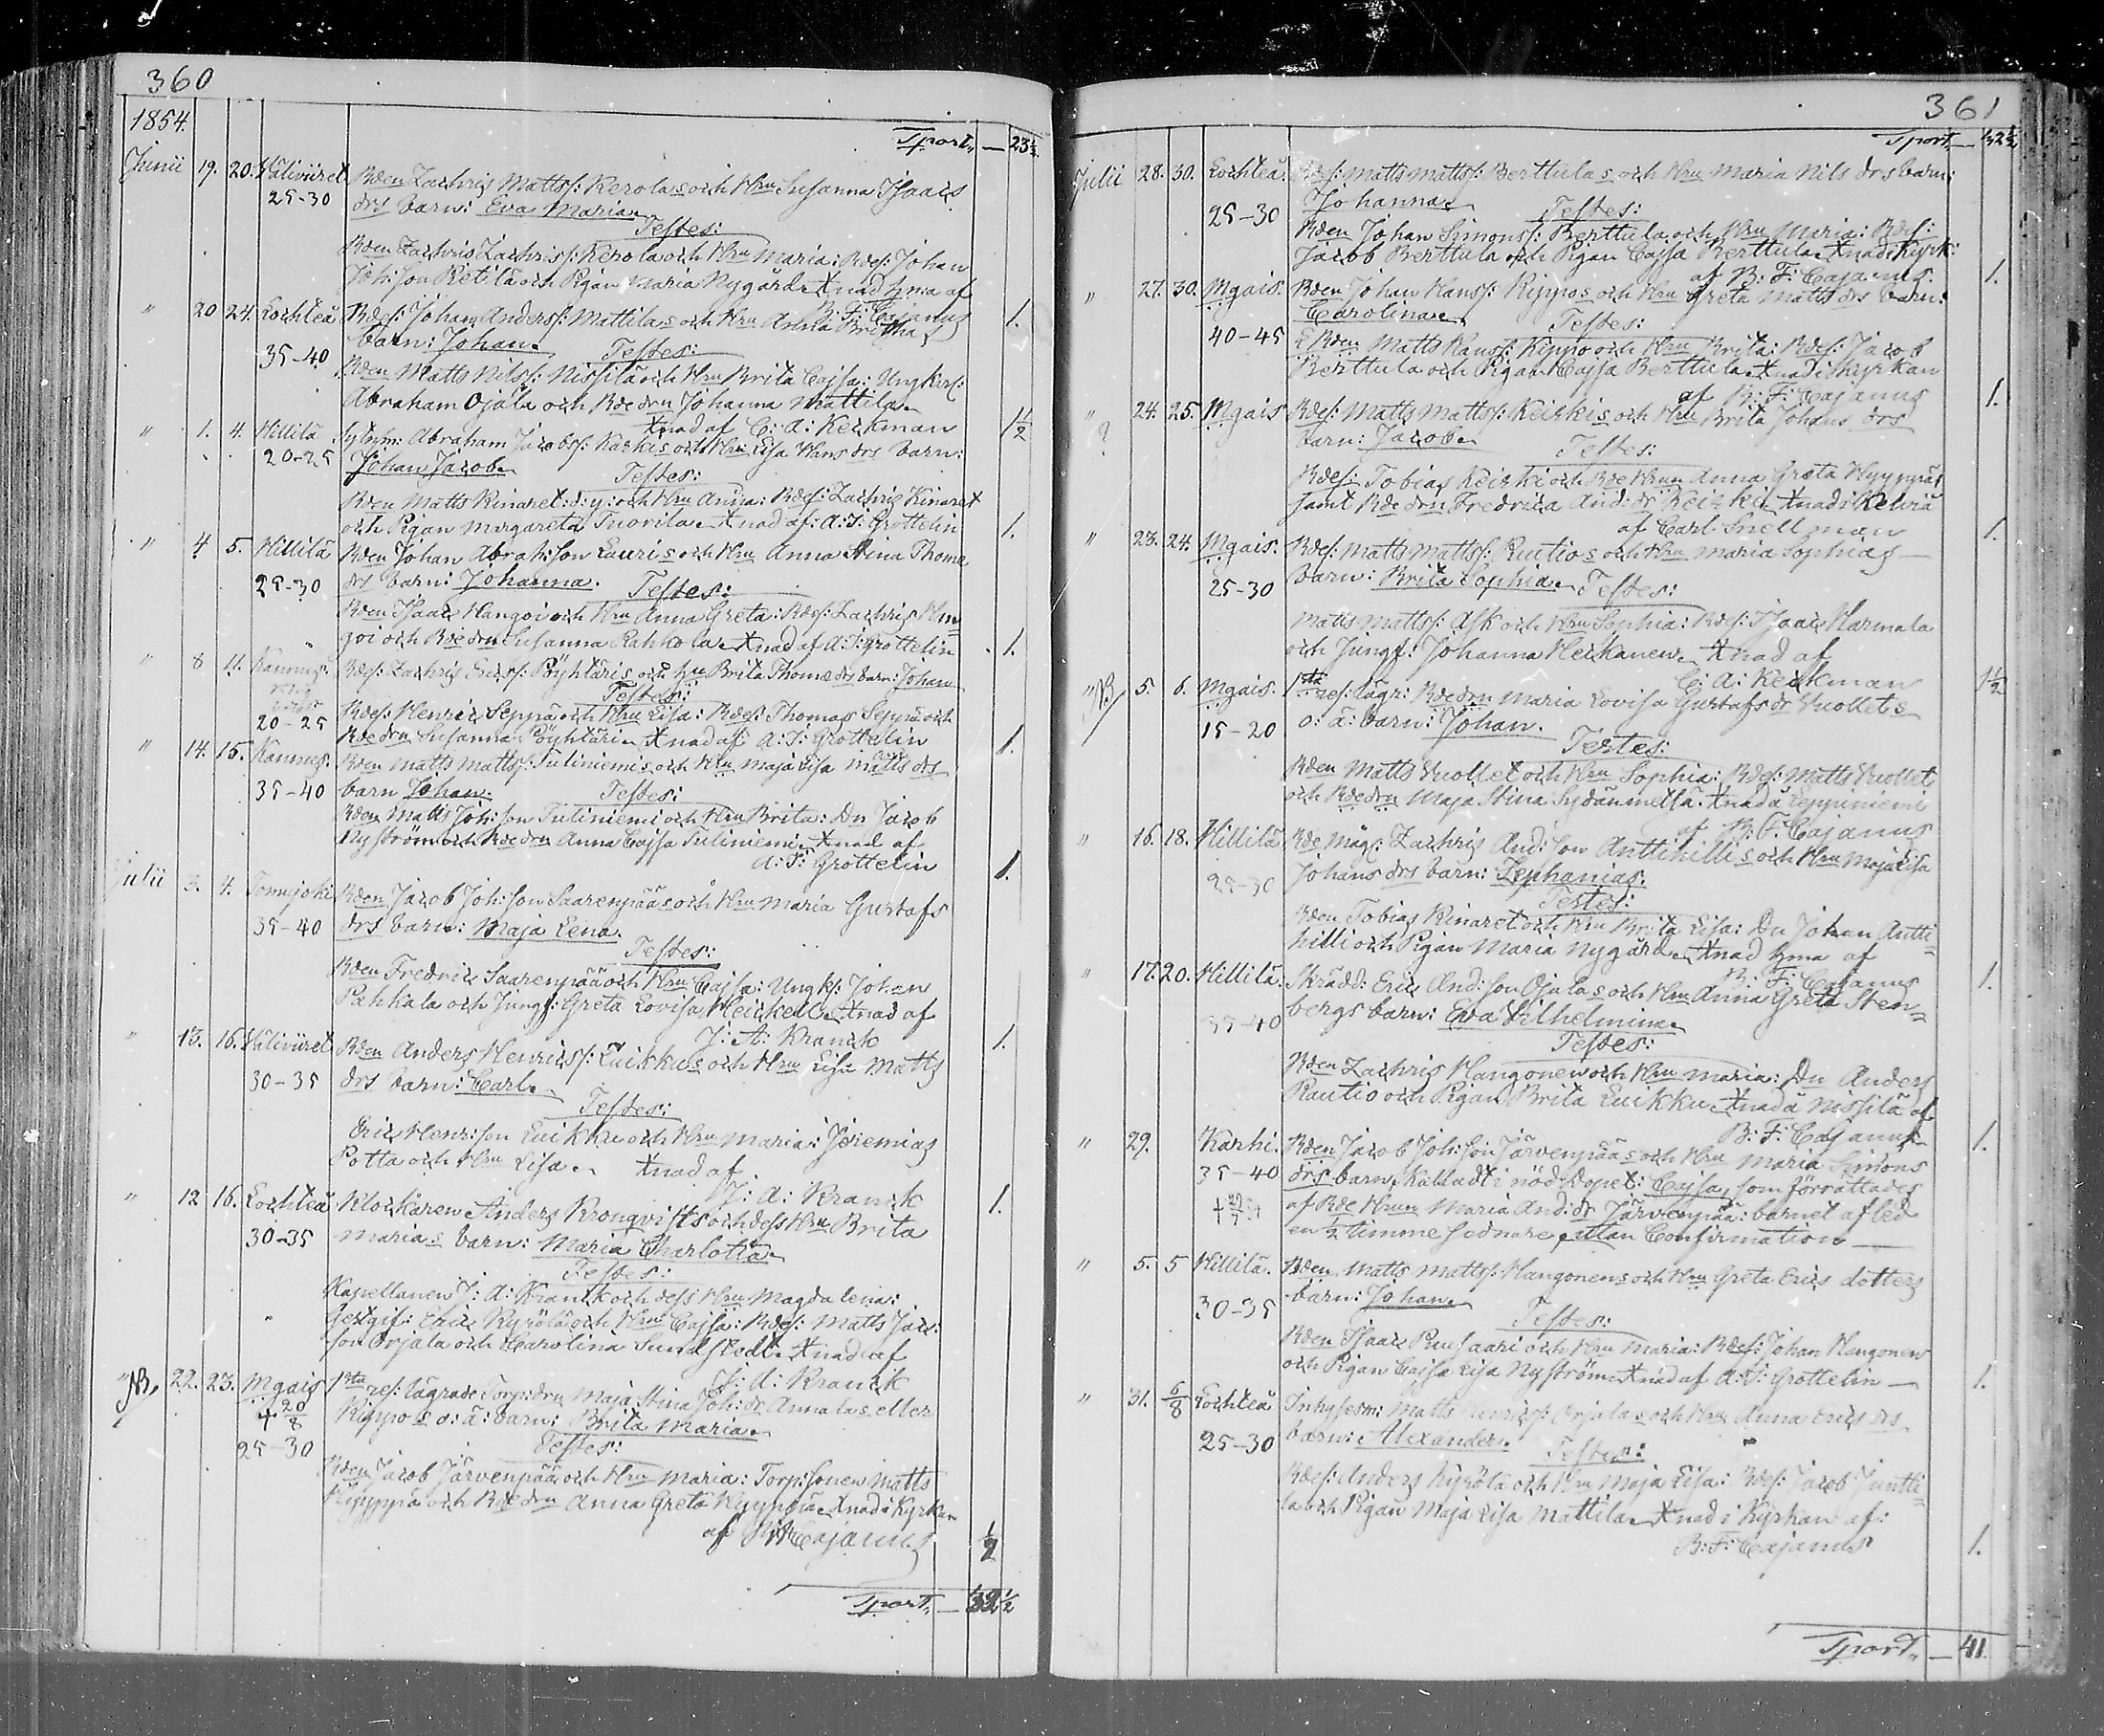 360
1854.
Tport. — 23½.
Junii 19. 20. Wälivüret Bden Zachris Mattss: Kerolas och Hru Susanna Isaacs
25-30 drs barn: Eva Maria.
Testes:
Bden Zachris Zachriss: Kerola och Hru Maria: Bdes: Johan
Joh:son Retilä och Pigan Maria Nygård. Xnad hma af
B: F: Cajanus 1.
" 20 24. Lochteå Bdes: Johan Anderss: Mattilas och Hru Anna Britha
barn: Johan.
35-40 Testes:
Bden Matts Nilss: Nissilä och Hru Brita Cajsa: Ungkarl:
Abraham Ojala och Bdedrn Johanna Mattila.
Xnad af C: A: Keckman 1½
" 1. 4. Hillilä Sytnhm: Abraham Jacobss: Karkis och Hru Lisa Hans drs barn:
20-25 Johan Jacob.
Testes:
Bden Matts Kinaret: d: y: och Hru Anna: Bdes: Zachris Kinaret
och Pigan Margareta Tuorila. Xnad af: A: I: Grottelin 1.
" 4 5. Hillilä Bden Johan Abrah:son Lauris och Hru Anna Stina Thome
25-30 drs barn: Johanna. Testes:
Bden Isaac Hangoi och Hru Anna Greta: Bdes: Zachris Han-
goi och Bdedrn Susanna Rahkola. Xnad af A: I: Grottelin 1.
" 8 11. Kannus. Bdes: Zachris Ericss: Pöyhtäris och Hu Brita Thomæ drs barn: Johan
Testes:
20-25 Bdes: Henric Seppä och Hru Lisa: Bdes: Thomas Seppä och
Bdedrn Susanna Pöyhtäri. Xnad af A: I: Grottelin 1.
" 14. 15. Kannus. Bden Matts Mattss: Tuliniemis och Hru Maja Lisa Matts drs
35-40 barn Johan. Testes:
Bden Matts Joh:son Tuliniemi och Hru Brita: Dn Jacob
Nyström och Bdedrn Anna Cajsa Tuliniemi. Xnad af
A: I: Grottelin 1.
Julii 3. 4. Tomujoki Bden Jacob Joh:son Saarenpääs och Hru Maria Gustafs
35-40 drs barn: Maja Lena.
Testes:
Bden Fredric Saarenpää och Hru Cajsa: Ungk: Johan
Pahkala och Jungf: Greta Lovisa Heickel. Xnad af
J: A: Kranck 1.
" 13. 16. Wälivüret Bden Anders Henricss: Luikkus och Hru Lisa Matts
30-35 drs barn: Carl.
Testes:
Eric Henr:son Luikku och Hru Maria: Jeremias
Potta och Hru Lisa. Xnad af
J: A: Kranck 1.
" 12 16. Lochteå Klockaren Anders Kronqvists och dess Hru Brita
30-35 Marias barn: Maria Charlotta.
Testes:
Kapellanen J: A: Kranck och dess Hru Magdalena:
Gestgif: Eric Kyrölä och Hru Cajsa: Bdes: Matts Jacs:
son Orjala och Carolina Sundstedt. Xnad af
J: A: Kranck
" NB, 22. 23. Mgais 1sta res: lägrade Torp:drn Maja Stina Joh: dr Annalas eller
+ 20/8 Kippos o: ä: barn: Brita Maria.
25-30 Testes:
Bden Jacob Järvenpää och Hru Maria: Torp:sonen Matts
Kyyppä och Bdedrn Anna Greta Kyyppä. Xnad i Kyrkan
af B: F: Cajanus ½
Tport. — 32½
361
Tport. — 32½
Julii 28. 30. Lochteå. Bdes: Matts Mattss: Berttulas och Hru Maria Nils drs barn:
Johanna.
25-30 Testes:
Bden Johan Simonss: Berttula och Hru Maria: Bdes:
Jacob Berttula och Pigan Cajsa Berttula. Xnad i Kyrk:
af B: F: Cajanus. 1.
" 27. 30. Mgais. Bden Johan Hanss: Kippos och Hru Greta Matts drs barn:
Carolina.
40-45 Testes:
E Bden Matts Hanss: Kippo och Hru Brita: Bdes: Jacob
Berttula och Pigan Cajsa Berttula. Xnad i Kyrkan
af B: F: Cajanus 1.
" 24. 25. Mgais Bdes: Matts Mattss: Keiskis och Hru Brita Johans drs
barn: Jacob.
Testes:
Bdes: Tobias Keiski och Bde Hrun Anna Greta Kyyppä,
samt Bdedrn Fredrica And: dr Keiski. Xnad i Kelviå
af Carl Snellman 1.
" 23. 24. Mgais. Bdes: Matts Mattss: Rautios och Hru Maria Sophias
25-30 barn: Brita Sophia. Testes:
Matts Mattss: Ask och Hru Sophia: Bdes: Isaac Harmala
och Jungf: Johanna Heikanen. Xnad af
C: A: Keckman 1½
" NB, 5. 6. Mgais. 1sta res: lägr: Bdedrn Maria Lovisa Gustafs dr Vuollets
15-20 o: ä: barn: Johan.
Testes:
Bden Matts Vuollet och Hru Sophia: Bdes: Matts Vuollet
och Bdedrn Maja Stina Sydänmetsä. Xnad å Leppiniemi
af B: F: Cajanus
" 16. 18. Hillilä Bde Måg: Zachris And:son Anttihillis och Hru Maja Lisa
25-30 Johans drs barn: Zephanias.
Testes:
Bden Tobias Kinaret och Hru Brita Lisa: Dn Johan Antti-
hilli och Pigan Maria Nygård. Xnad hma af
B: F: Cajanus 1.
" 17. 20. Hillilä. Skrädd: Eric And:son Ojalas och Hru Anna Greta Sten-
35-40 bergs barn: Eva Vilhelmina.
Testes:
Bden Zachris Hangonen och Hru Maria: Dn Anders
Rautio och Pigan Brita Luikku. Xnad å Nissilä af
B: F: Cajanus 1.
" 29. Karhi. Bden Jacob Joh:son Järvenpääs och Hru Maria Simons
35-40 drs barn, kalladt i nöd Dopet: Cajsa, som förrättades
+ 29/7 af Bde Hrun Maria And: dr Järvenpää: barnet afled
en ½ timme sednare, utan Confirmation —
" 5. 5 Hillilä. Bden Matts Mattss: Hangonens och Hru Greta Erics dotters
30-35 barn: Johan.
Testes:
Bden Isaac Puusaari och Hru Maria: Bdes: Johan Hangonen
och Pigan Cajsa Lisa Nyström. Xnad af A: I: Grottelin — 1.
" 31. 6/8 Lochteå Inhysesm: Matts Henricss: Orjalas och Hru Anna Erics drs
25-30 barn: Alexander. Testes:
Bdes: Anders Kyrölä och Hru Maja Lisa: Bdes: Jacob Juntti-
la och Pigan Maja Lisa Mattila. Xnad i Kyrkan af:
B: F: Cajanus 1.
Tport. — 41.